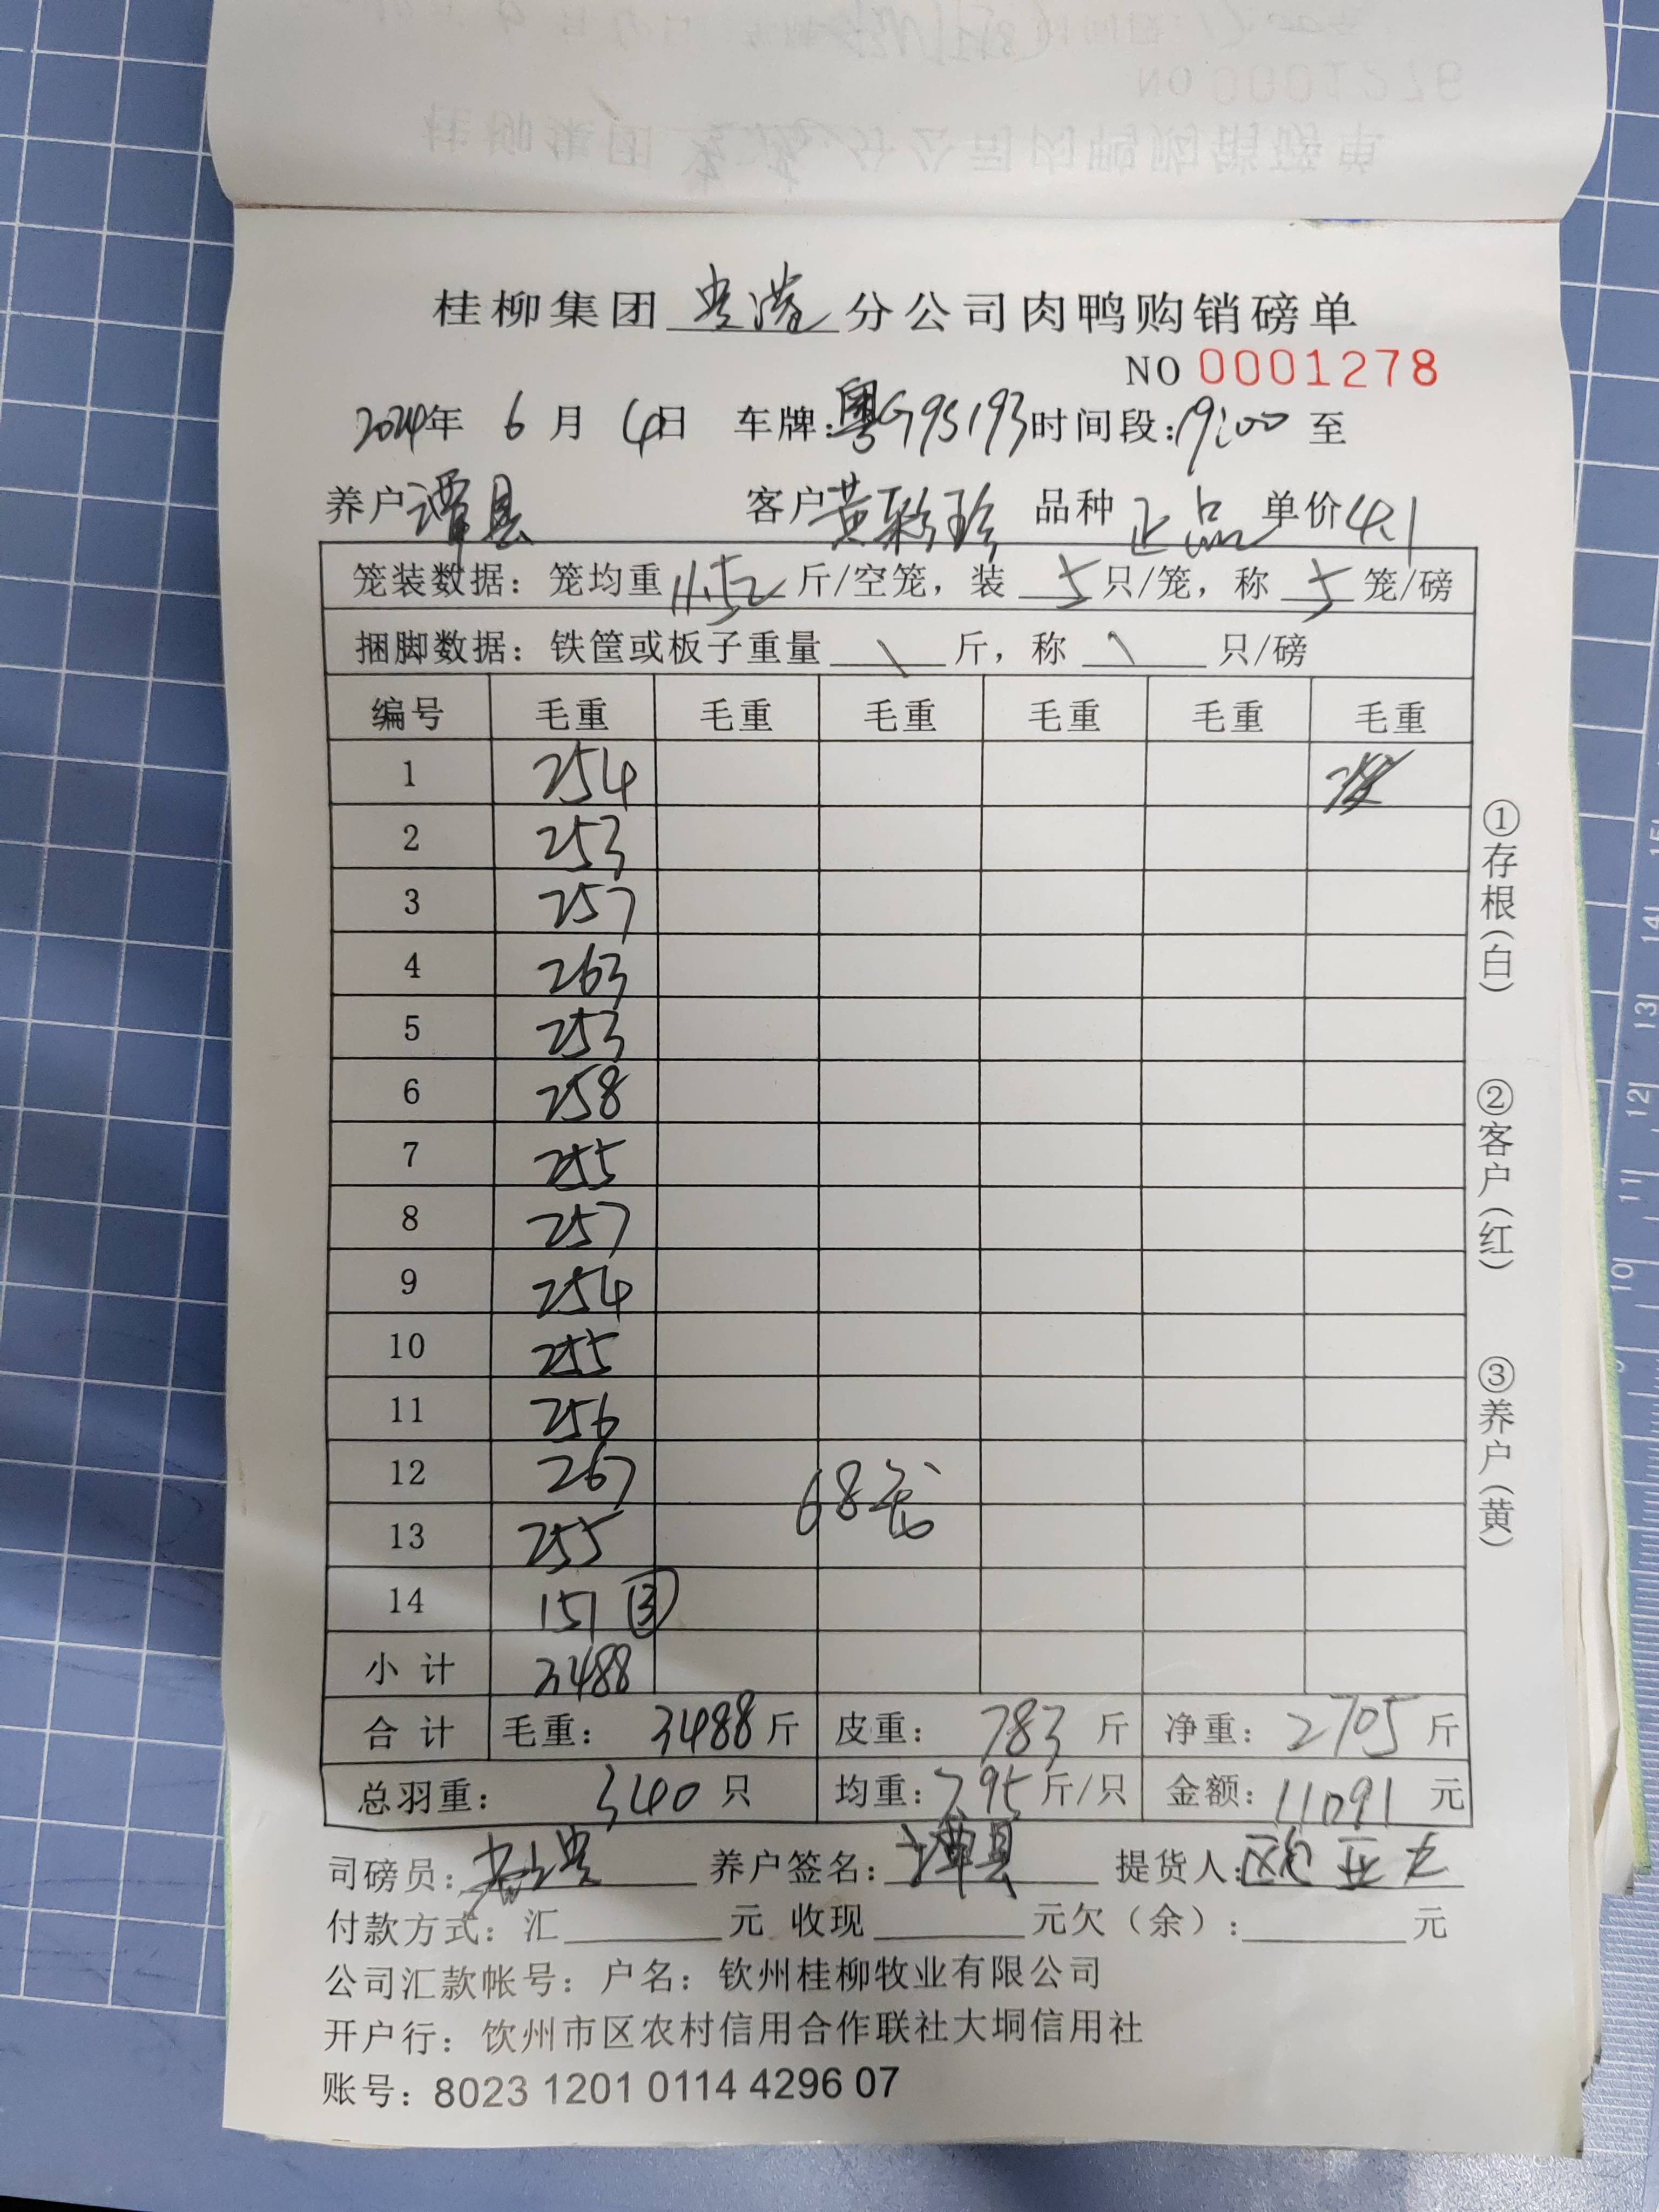 桂柳集团贵港分公司肉鸭购销磅单
NO 0001278
2024年 6月 4日 车牌:粤G95193 时间段:19:00 至
养户 谭县 客户 黄彩珍 品种 正品 单价 4.1
笼装数据：笼均重 11.52 斤/空笼，装 5 只/笼，称 5 笼/磅
捆脚数据：铁筐或板子重量 \ 斤，称 \ 只/磅
编号 毛重 毛重 毛重 毛重 毛重 毛重
1 254
2 253
3 257
4 263
5 253
6 258
7 255
8 257
9 254
10 255
11 256
12 267
68花
13 255
14 151 ③
小计 3488
合计 毛重：3488斤 皮重：783斤 净重：2705斤
总羽重：340只 均重：7.95斤/只 金额：11091元
司磅员： 养户签名：谭县 提货人：
付款方式：汇 元 收现 元欠（余）： 元
公司汇款帐号：户名：钦州桂柳牧业有限公司
开户行：饮州市区农村信用合作联社大垌信用社
账号：8023 1201 0114 4296 07
①存根（白）
②客户（红）
③养户（黄）
15
14
13
12
11
10